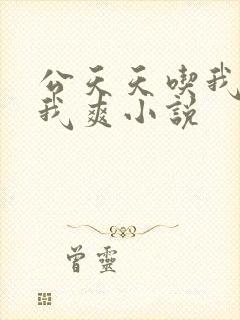 公天天喫我
我爽小說
曾靈